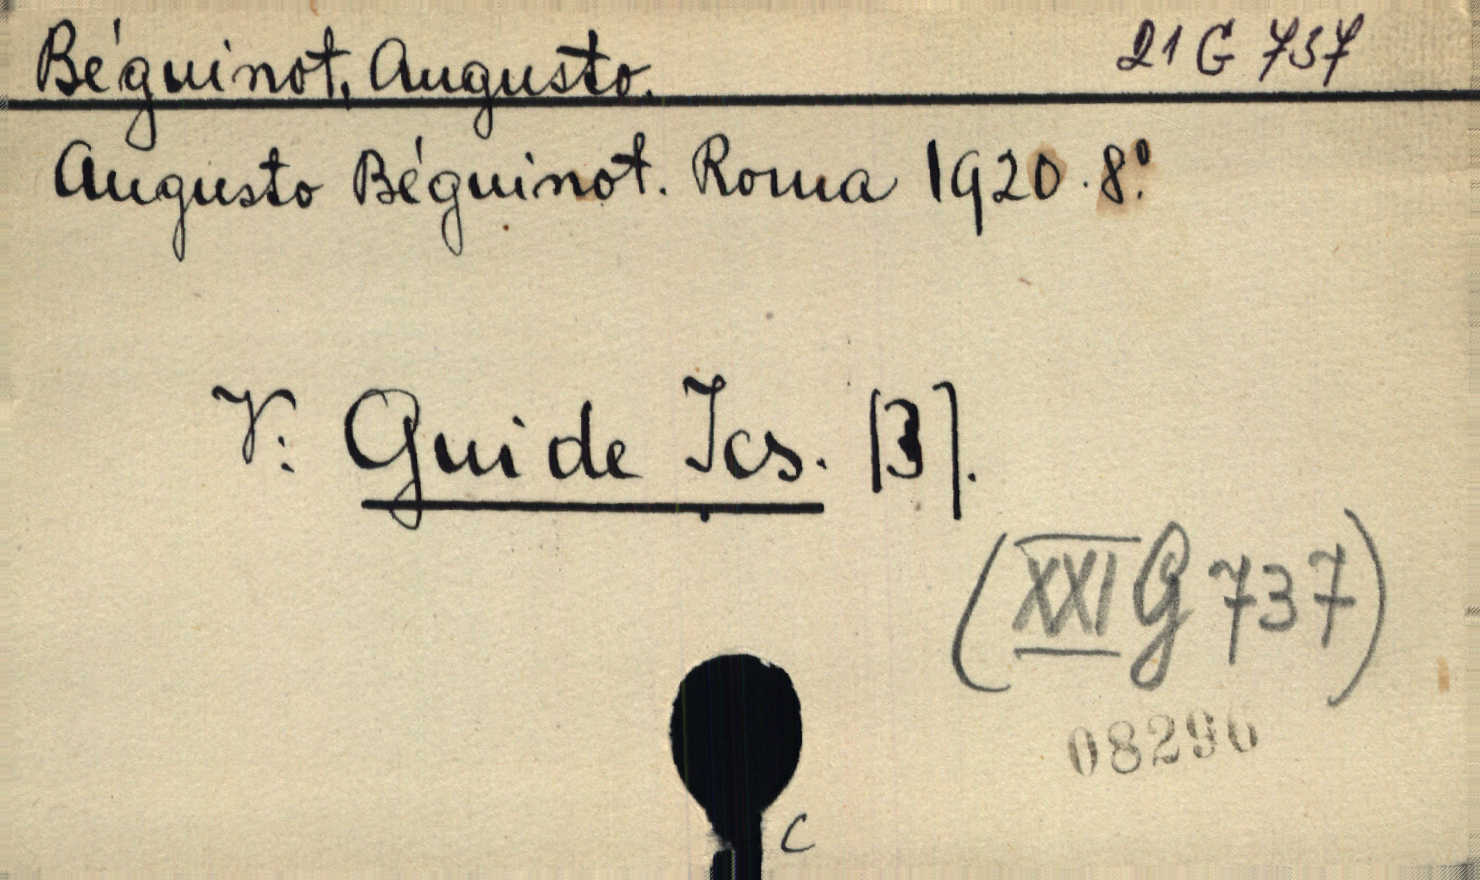 Béguinot, Augusto. 21 G 737
Augusto Béguinot. Roma 1920. 8º.
V: Guide Ics. [3].
(XXI G 737)
08296
C